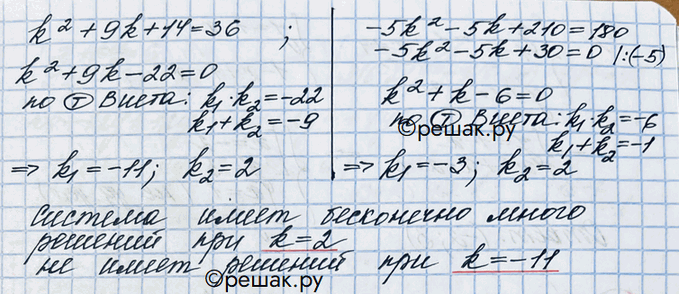 k² + 9k + 14 = 36 ;
k² + 9k - 22 = 0
по Ⓣ Виета: k₁·k₂ = -22
k₁ + k₂ = -9
⇒ k₁ = -11; k₂ = 2
-5k² - 5k + 210 = 180
-5k² - 5k + 30 = 0 |:(-5)
k² + k - 6 = 0
по Ⓣ Виета: k₁·k₂ = -6
©решак.ру
k₁ + k₂ = -1
⇒ k₁ = -3; k₂ = 2
система имеет бесконечно много
решений при k = 2
не имеет решений при k = -11
©решак.ру